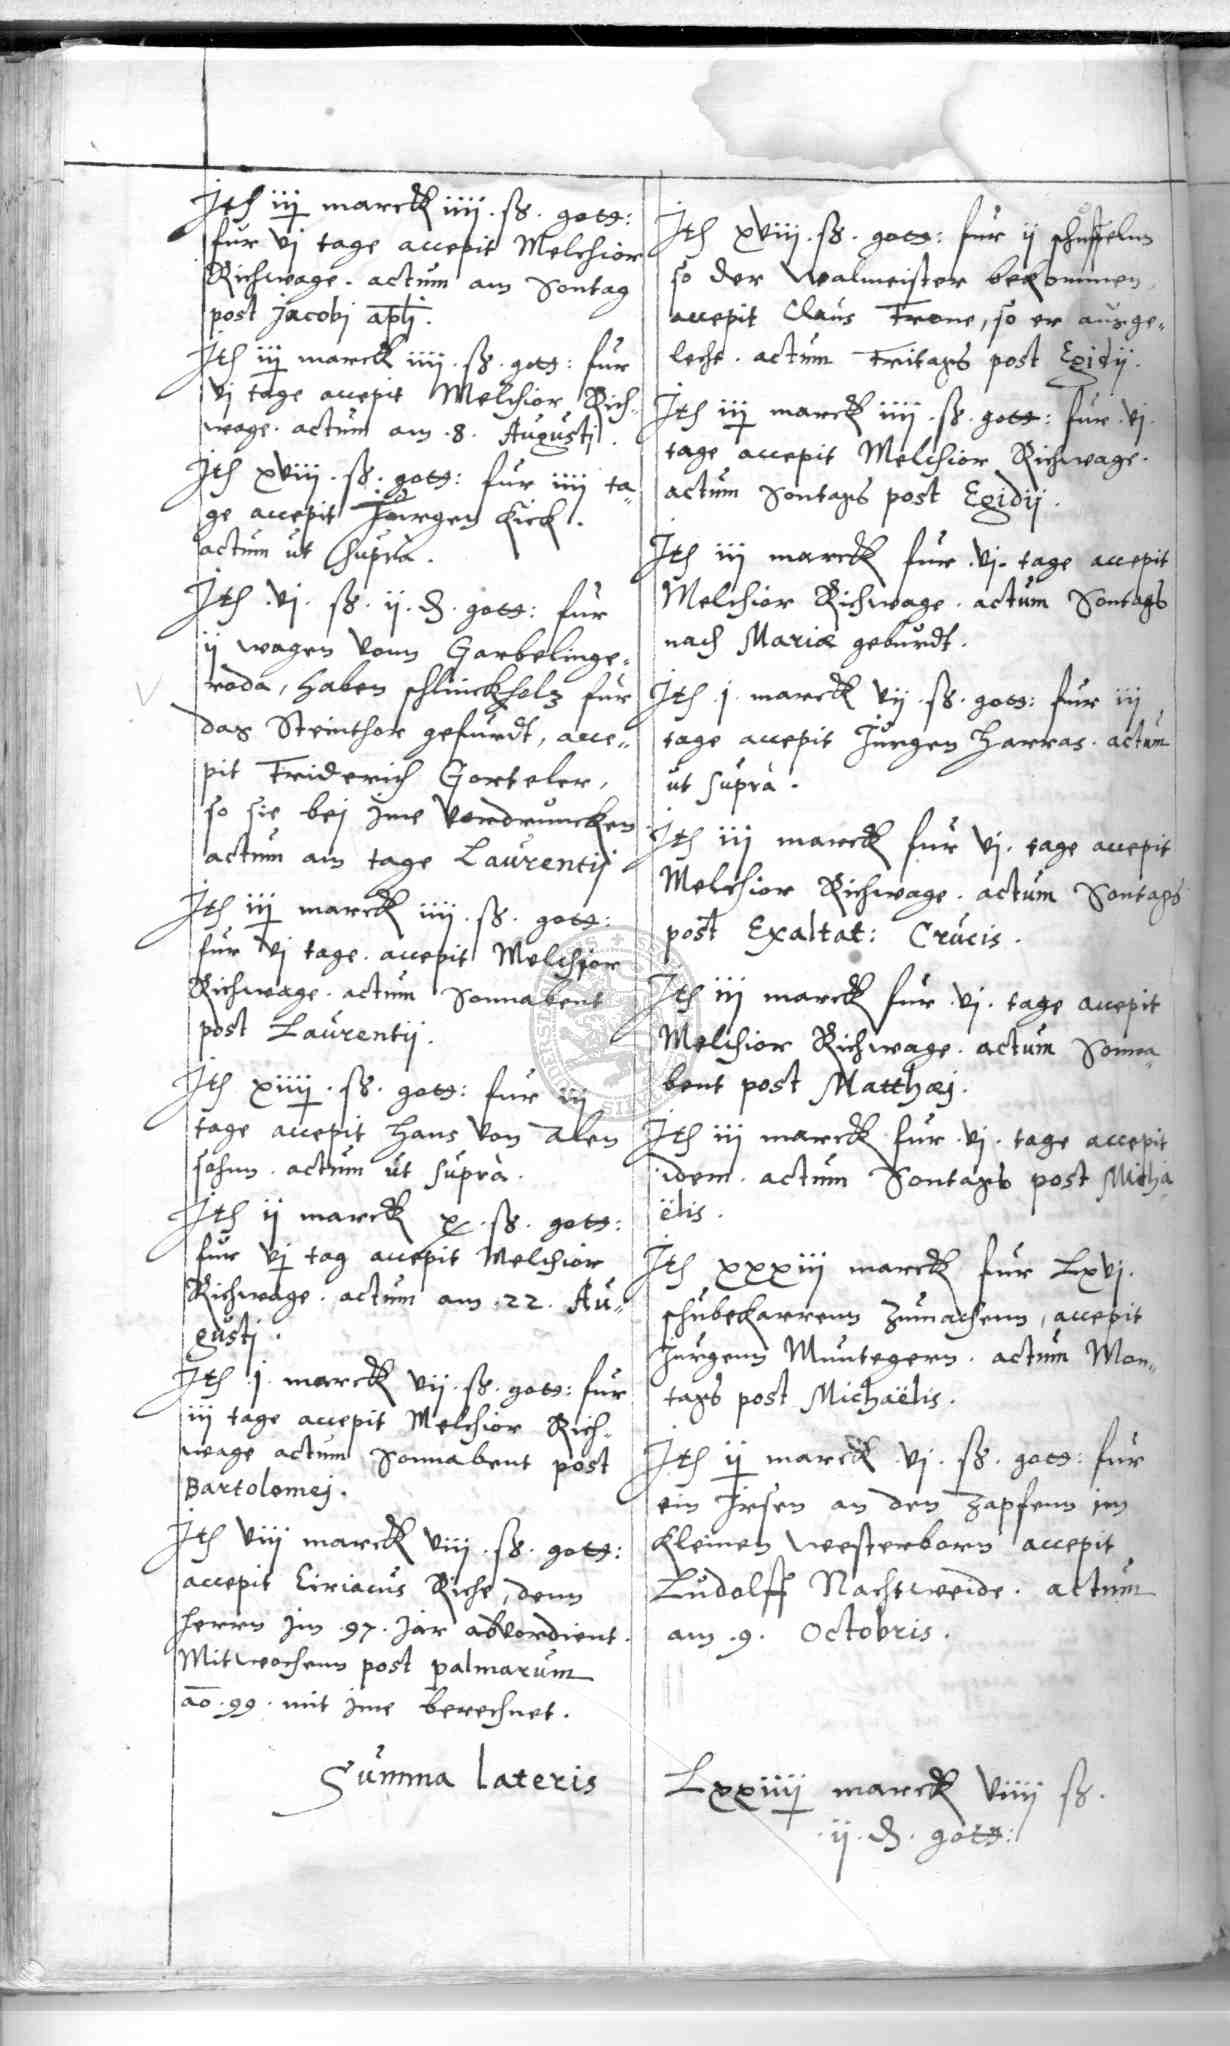 Ith iij marck iiij. ß. gott:
fur vj tage accepit Melchior
Richwage. actum am Sontag
post Jacobj apli.
Ith iij marck iiij. ß. gott: fur
vj tage accepit Melchior Rich-
wage. actum am .8. Augustj.
Ith xviij. ß. gott: fur iiij ta-
ge accepit Jurgen Kick.
actum ut supra.
Ith .vj. ß. ij. ₰. gott: fur
ij wagen vonn Garbelinge-
roda, haben schlinckholz fur
das Steinthor gefurdt, acce-
pit Friderich Gorteler,
so sie bej jme vordruncken
actum am tage Laurentij
Ith iij marck iiij. ß. gott:
fur vj tage. accepit Melchior
Richwage. actum Sonnabent
post Laurentij.
Ith xiiij. ß. gott: fur iij
tage accepit Hans von Alen
sohnn. actum ut supra.
Ith ij marck x. ß. gott:
fur vj tag accepit Melchior
Richwage. actum am .22. Au-
gustj.
Ith .j. marck vij. ß. gott: fur
iij tage accepit Melchior Rich-
wage actum Sonnabent post
Bartolomej.
Ith viij marck viij. ß. gott:
accepit Ciriacus Riche, denn
herrn jm .97. Jar abvordient.
Mitwochenn post palmarum
ao .99. mit jme berechnet.
Summa lateris
Ith xviij. ß. gott: fur ij schuffelnn
so der Walmeister bekommen,
accepit Claus Frone, so er ausge-
lecht. actum Fritags post Egidij.
Ith iij marck iiij. ß. gott: fur .vj.
tage accepit Melchior Richwage.
actum Sontags post Egidij.
Ith iij marck fur .vj. tage accepit
Melchior Richwage. actum Sontags
nach Mariæ geburdt.
Ith .j. marck vij. ß. gott: fur iij
tage accepit Jurgen Harras. actum
ut supra.
Ith iij marck fur vj. tage accepit
Melchior Richwage. actum Sontags
post Exaltat: Crucis.
Ith iij marck fur .vj. tage accepit
Melchior Richwage. actum Sonna-
bent post Matthæj.
Ith iij marck fur .vj. tage accepit
idem. actum Sontags post Micha
ëlis.
Ith xxxiij marck fur Lxvj.
schubekarrenn zumachenn, accepit
Jurgenn Muntegern. actum Mon-
tags post Michaëlis.
Ith ij marck .vj. ß. gott: fur
ein Jrsen an den zapfenn jm
kleinen Westerborn accepit
Ludolff Nachtweide. actum
am .9. Octobris.
Lxxiiij marck viiij ß.
.ij. ₰. gott: